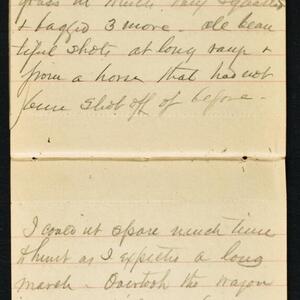 grass in which they squatted
& bagged 3 more. all beau
tiful shots at long range &
from a horse that has not
been shot off of before -
I could nt spare much time
to hunt as I expected a long
march. Overtook the wagon